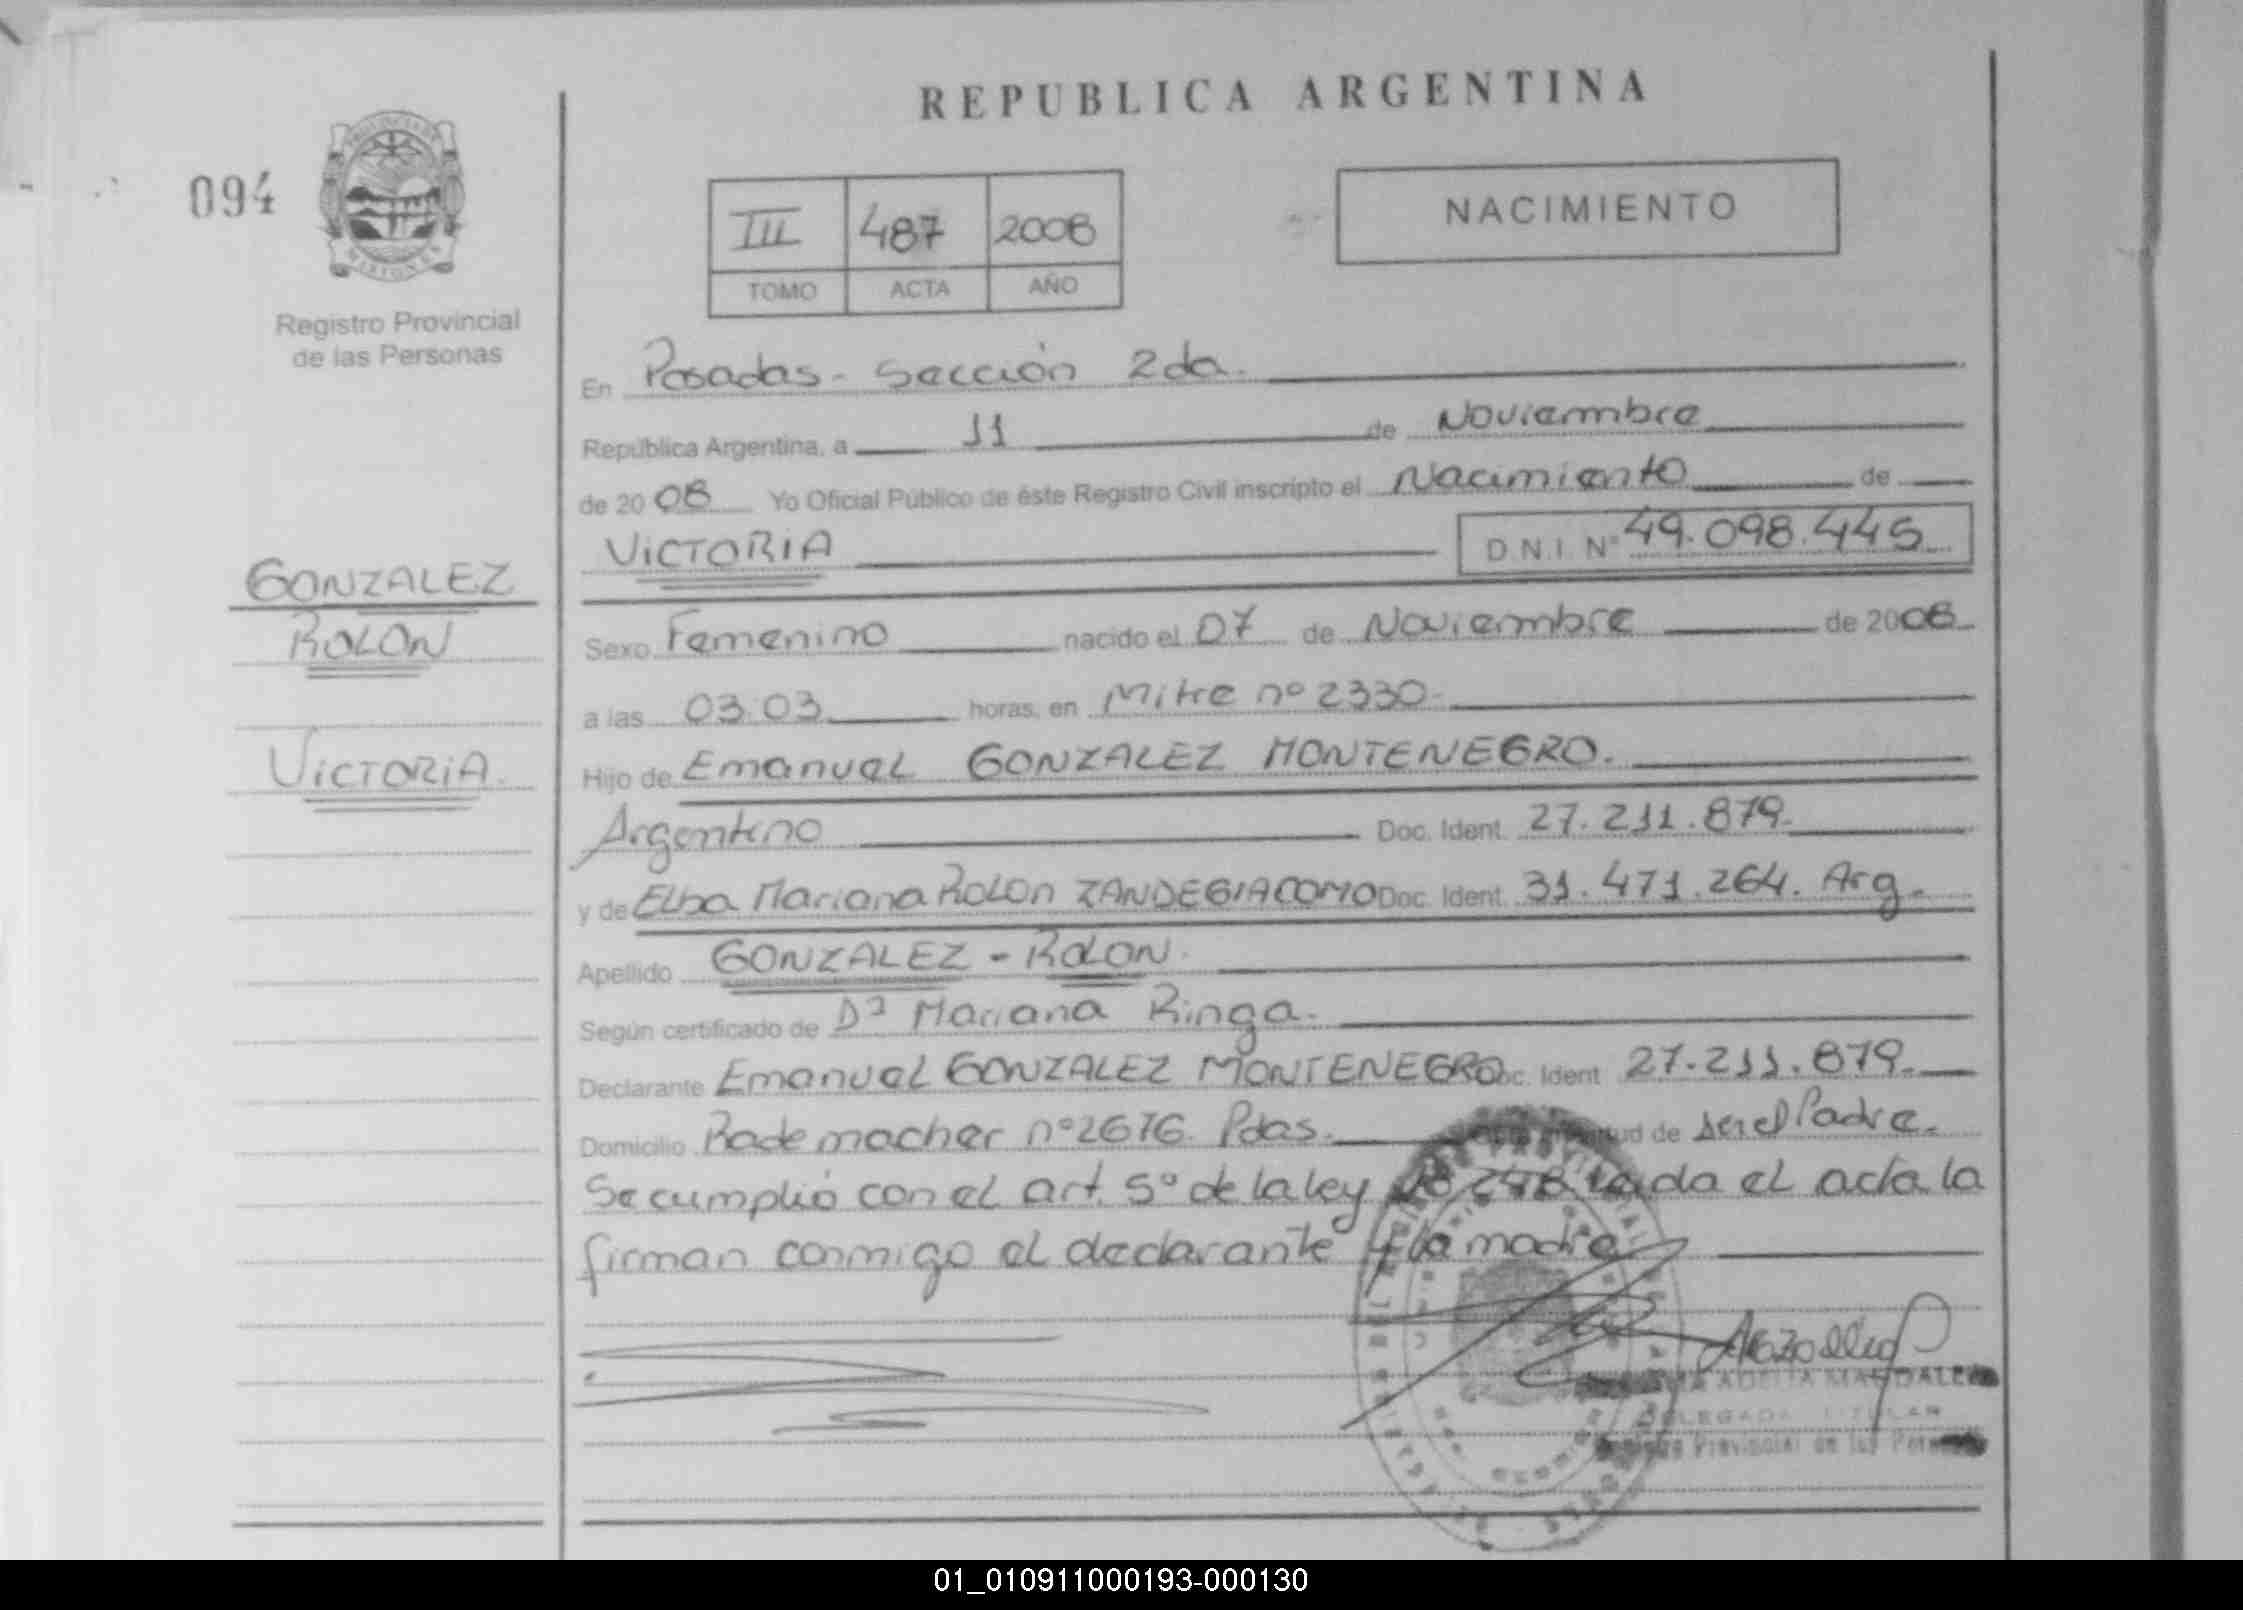 REPUBLICA ARGENTINA
094
PROVINCIA DE
MISIONES
Registro Provincial
de las Personas
III 487 2008
TOMO ACTA AÑO
NACIMIENTO
En Posadas - Sección 2da.
República Argentina, a 11 de Noviembre
de 2008 Yo Oficial Público de éste Registro Civil inscripto el Nacimiento de
VICTORIA D.N.I. Nº 49.098.445
GONZALEZ
ROLON
VICTORIA.
Sexo Femenino nacido el 07 de Noviembre de 2008
a las 03:03 horas, en Mitre nº 2330.
Hijo de Emanuel GONZALEZ MONTENEGRO.
Argentino Doc. Ident. 27.211.879.
y de Elba Mariana ROLON ZANDEGIACOMO Doc. Ident. 31.471.264. Arg.
Apellido GONZALEZ - ROLON.
Según certificado de Dª Mariana Ringa.
Declarante Emanuel GONZALEZ MONTENEGRO Doc. Ident 27.211.879.
Domicilio Rademacher nº 2676. Pdas. ser el Padre.
Se cumplió con el art. 5º de la ley 18248 Leida el acta la
firman conmigo el declarante y la madre
ADELIA MAGDALENA
DELEGADA TITULAR
Registro Provincial de las Personas
01_010911000193-000130